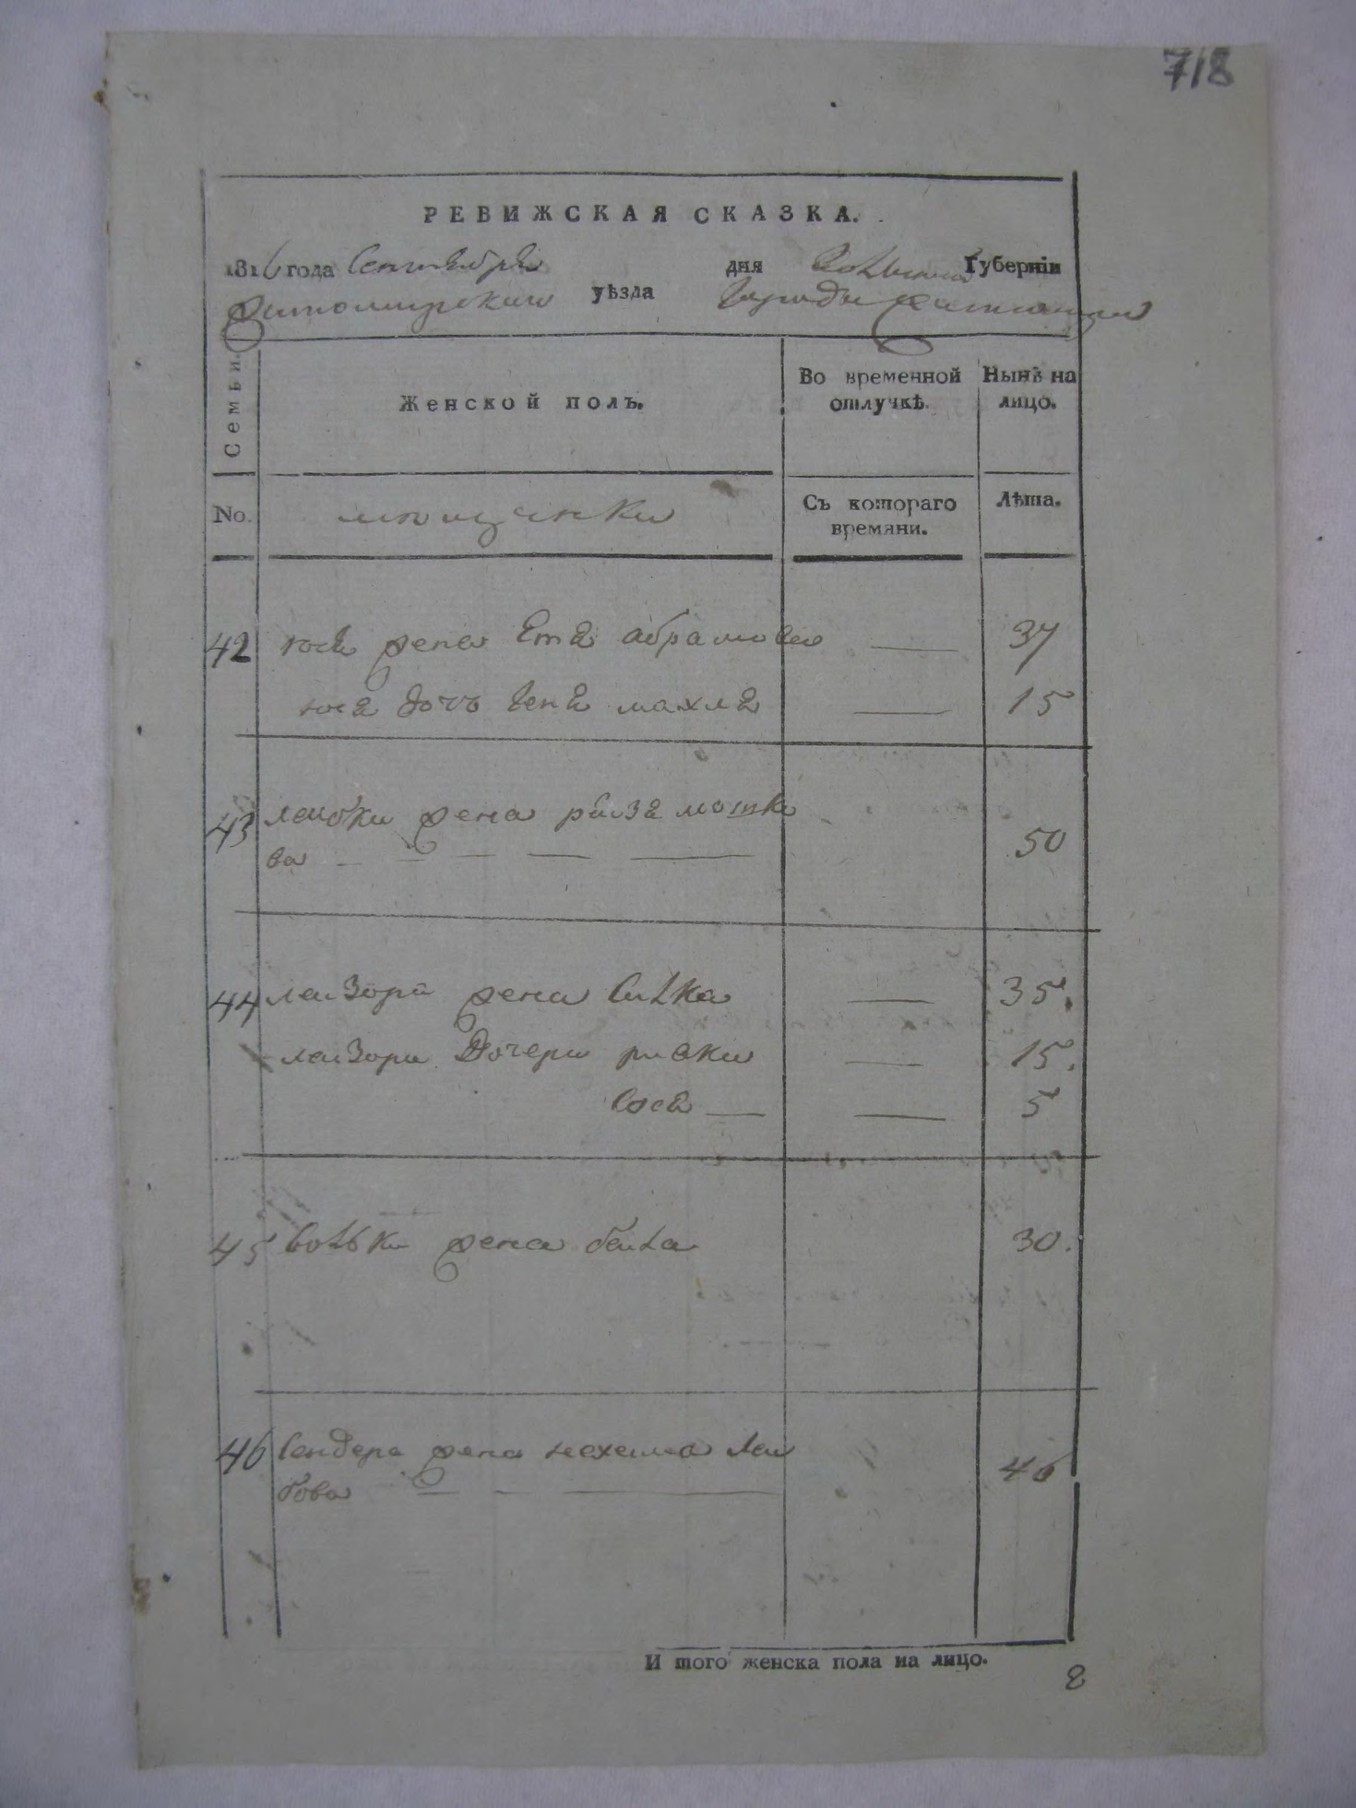 718
РЕВИЖСКАЯ СКАЗКА.
1816 года Сентября дня Волынской Губерніи
Житомирского уѣзда города Житомира
Семьи.
Женской полъ.
Во временной отлучкѣ.
Нынѣ на лицо.
No.
мещанки
Съ котораго времяни.
Лѣта.
42 иося жена Етя абрамова — 37
иося дочь ҆ геня махля — 15
43 лейбки жена рейзя мошко
ва — — — — — 50
44 лейзора жена СиLка — 35.
лейзора Дочери ривки — 15.
Сося — — 5
45 вольки жена бейла 30.
46 Сендера жена нехема Лей
бова — — — 46
И того женска пола на лицо.
8